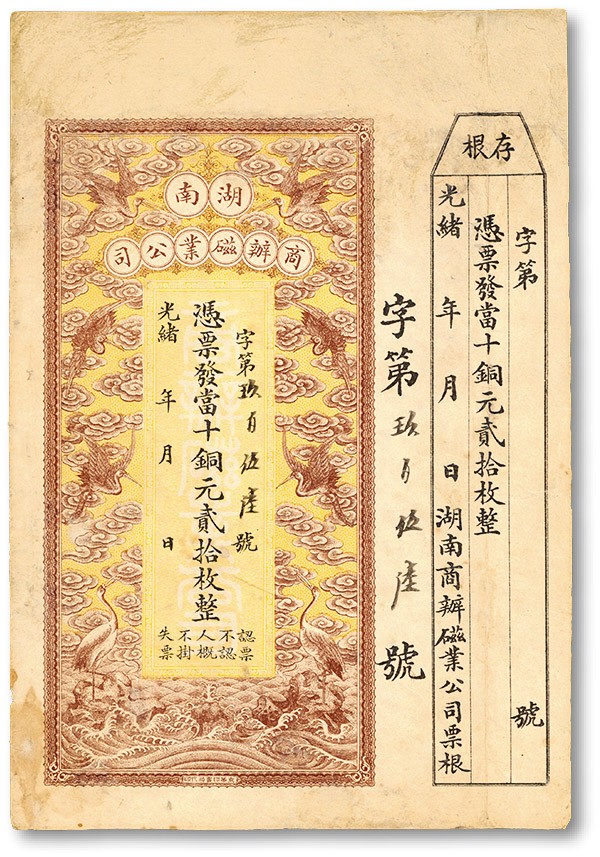 存根
字第 號
憑票發當十銅元貳拾枚整
光緒 年 月 日 湖南商辦磁業公司票根
字第玖百伍陸號
湖南
商辦磁業公司
字第玖百伍陸號
憑票發當十銅元貳拾枚整
光緒 年 月 日
認票不認人概不掛失票